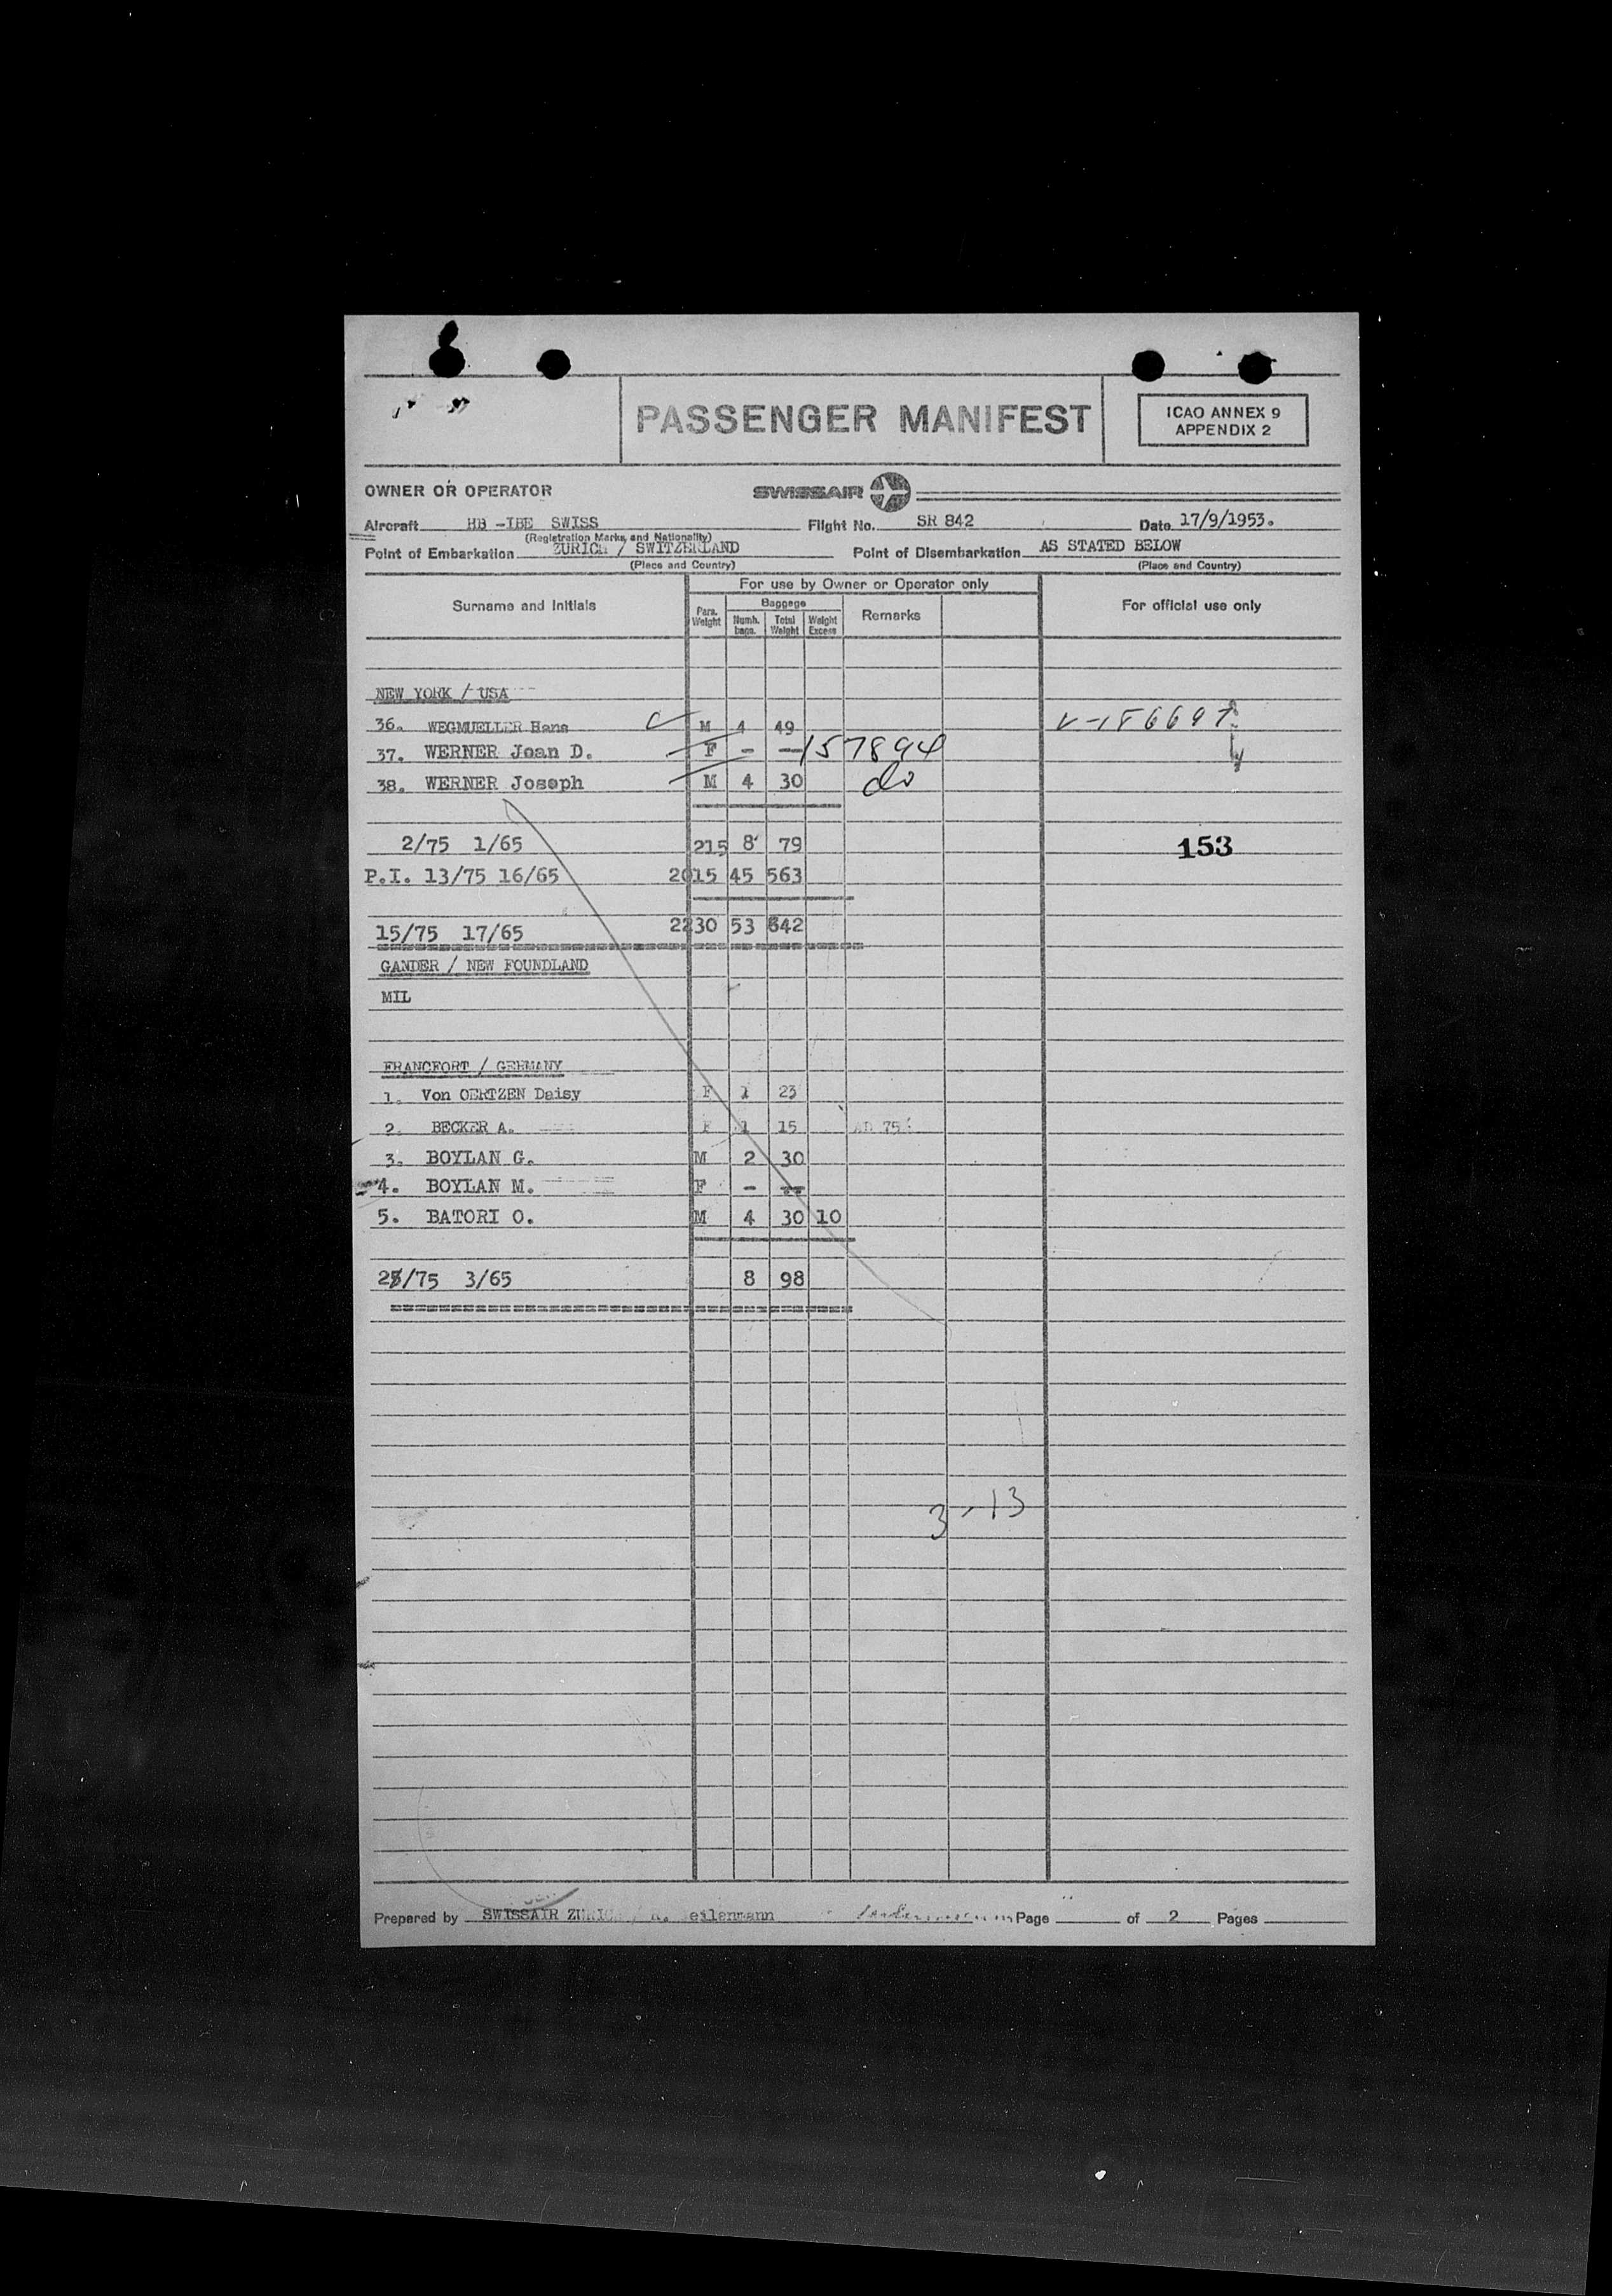 PASSENGER MANIFEST
ICAO ANNEX 9
APPENDIX 2
OWNER OR OPERATOR SWISSAIR
Aircraft HB -IBE SWISS Flight No. SR 842 Date 17/9/1953.
(Registration Marks and Nationality)
Point of Embarkation ZURICH / SWITZERLAND Point of Disembarkation AS STATED BELOW
(Place and Country) (Place and Country)
For use by Owner or Operator only
Surname and Initials Pass. Weight Baggage Numb. bags. Total Weight Weight Excess Remarks For official use only
NEW YORK / USA
36. WEGMUELLER Hans M 4 49
37. WERNER Joan D. F - — 157894
38. WERNER Joseph M 4 30 do
2/75 1/65 215 8 79 153
P.I. 13/75 16/65 2015 45 563
15/75 17/65 2230 53 642
GANDER / NEW FOUNDLAND
MIL
FRANCFORT / GERMANY
1. Von OERTZEN Daisy F 1 23
2. BECKER A. F 1 15 AD 75
3. BOYLAN G. M 2 30
4. BOYLAN M. F - --
5. BATORI O. M 4 30 10
2/75 3/65 8 98
3-13
Prepared by SWISSAIR ZURICH / Page of 2 Pages